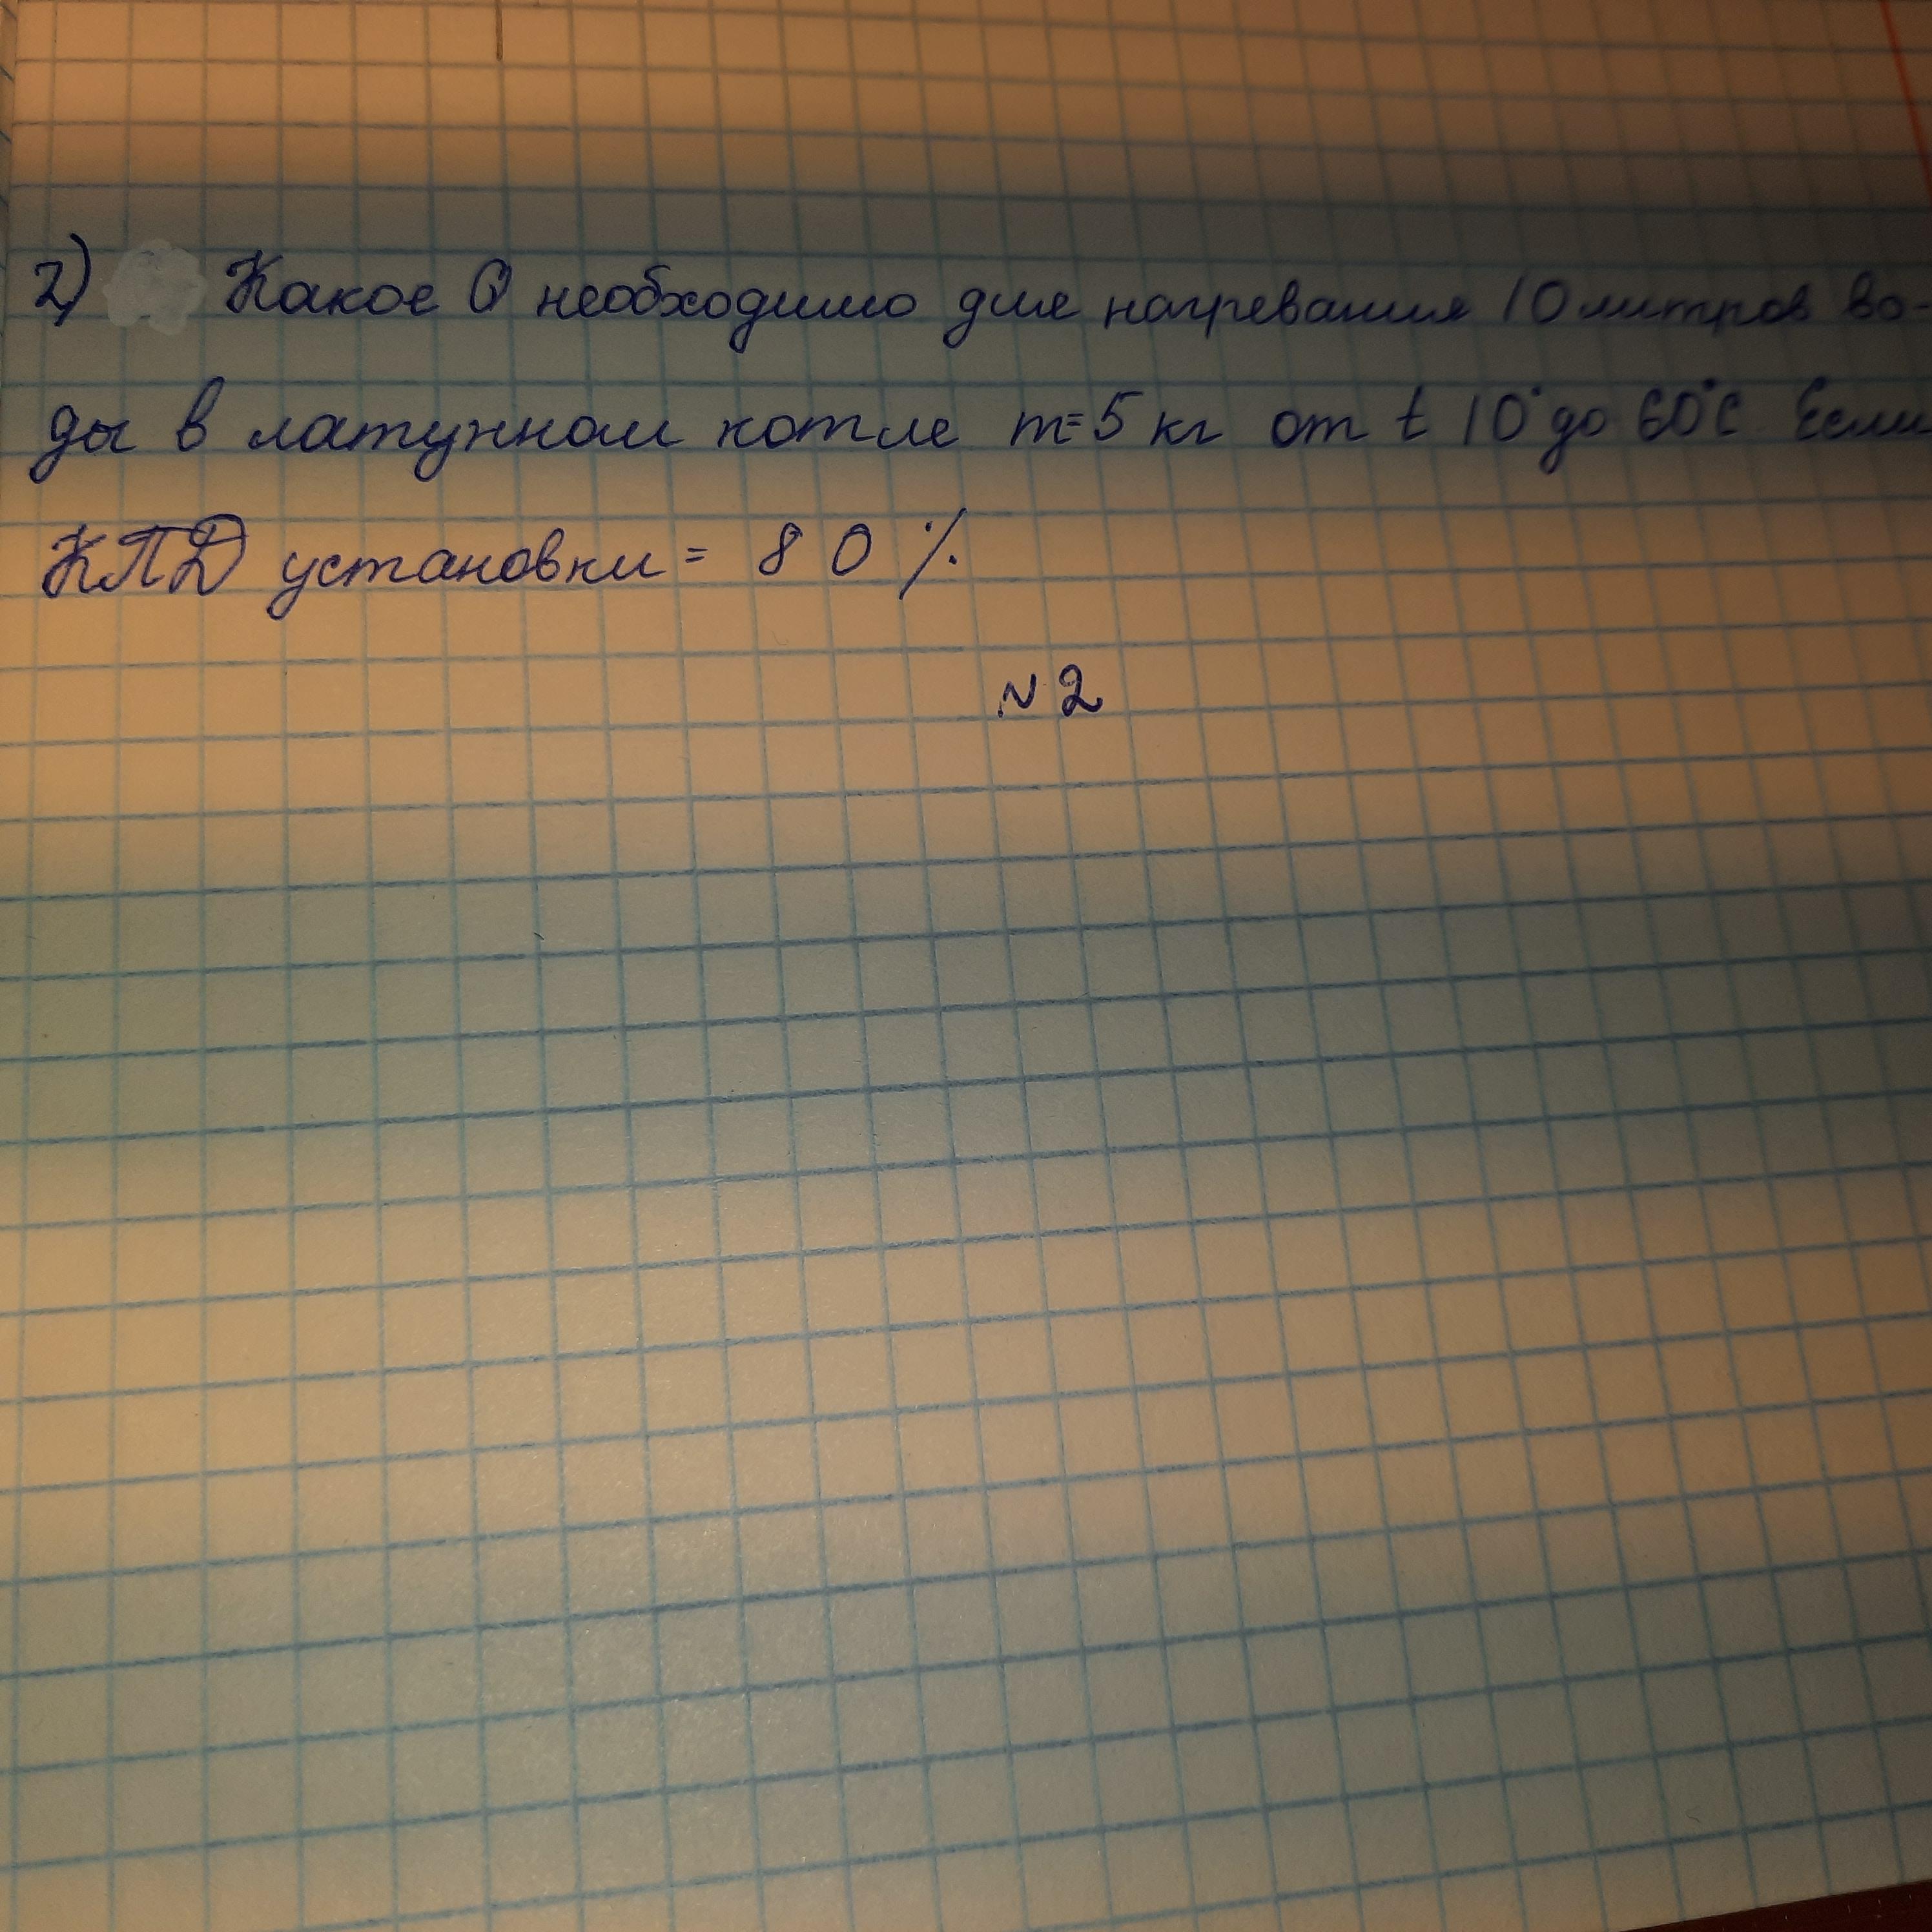 2) Какое Q необходимо для нагревания 10 литров во-
ды в латунном котле m=5 кг от t 10° до 60°С. Если
КПД установки = 80 %
N 2